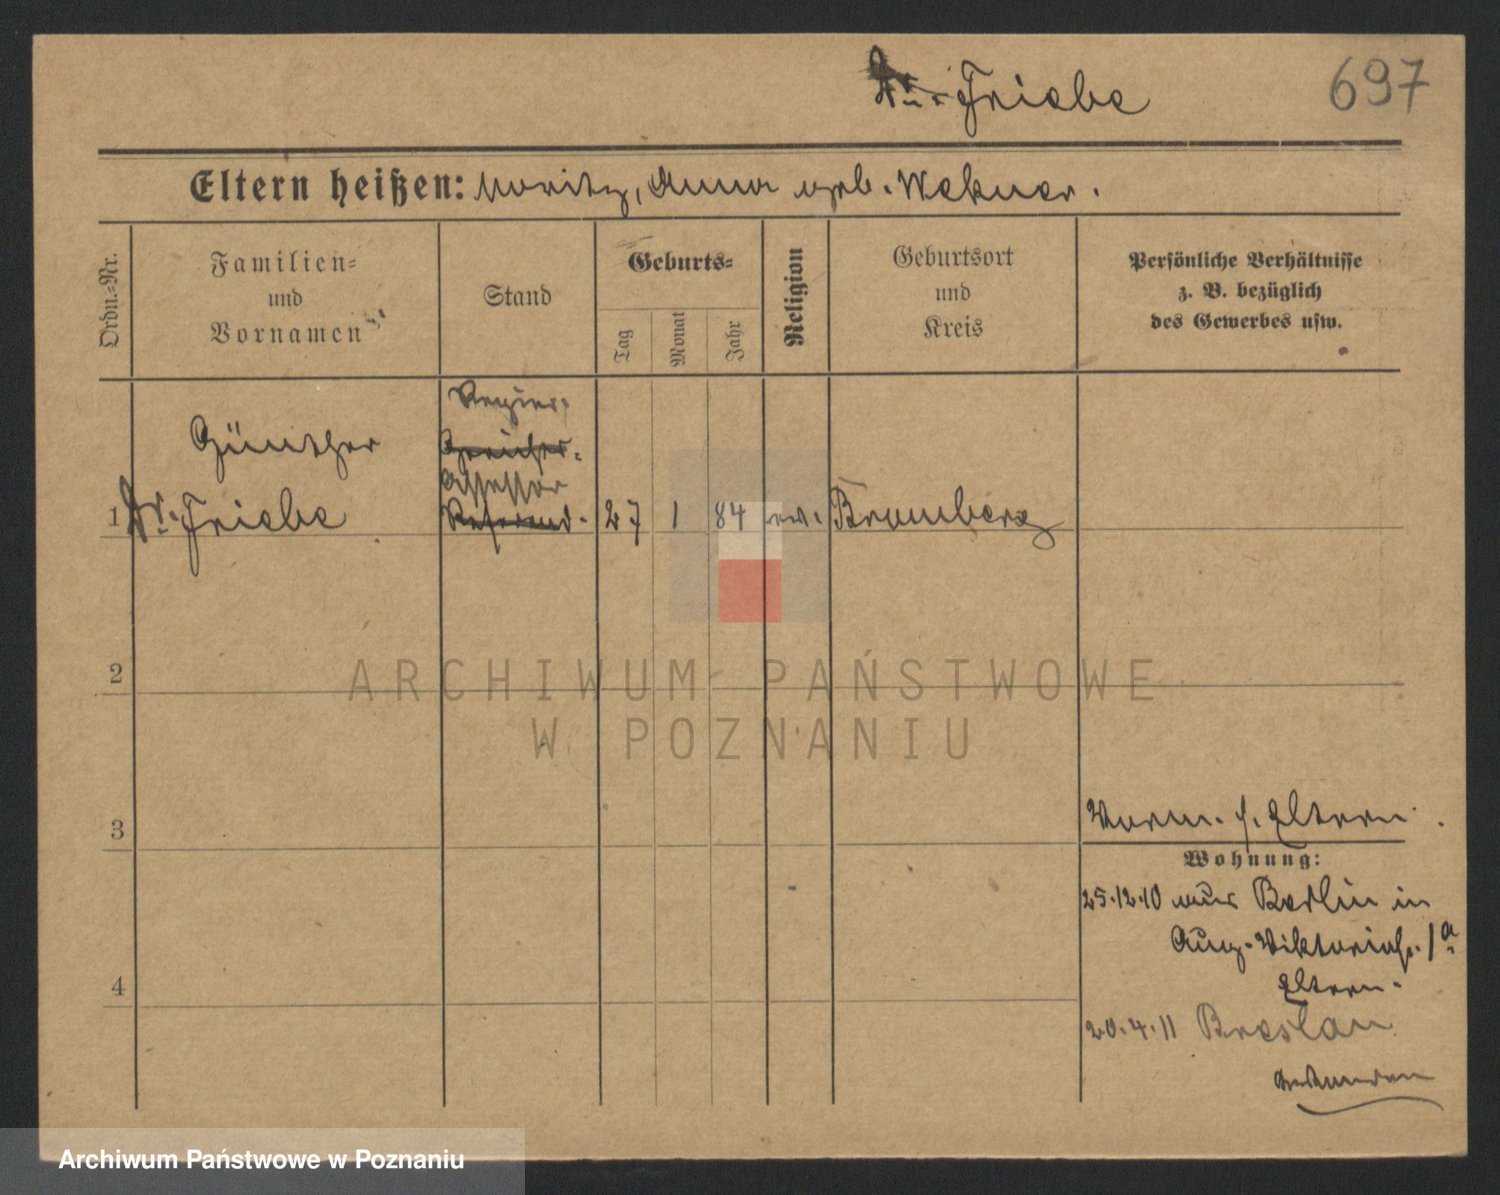 Dr. Friebe
697
Eltern heißen: Moritz, Anna geb. Wekner.
Ordn.-Nr.
Familien-
und
Vornamen
Stand
Geburts-
Tag
Monat
Jahr
Religion
Geburtsort
und
Kreis
Persönliche Verhältnisse
z. B. bezüglich
des Gewerbes usw.
Regier.
Günther
Gerichts-
Assessor
1 Dr. Friebe Referend. 27 1 84 ev. Bromberg
2
ARCHIWUM PAŃSTWOWE
W POZNANIU
3
Vorm. s. Eltern.
Wohnung:
25.12.10 aus Berlin in
Aug. Viktoriastr. 1a
Eltern.
4
20.4.11 Breslau
Archiwum Państwowe w Poznaniu